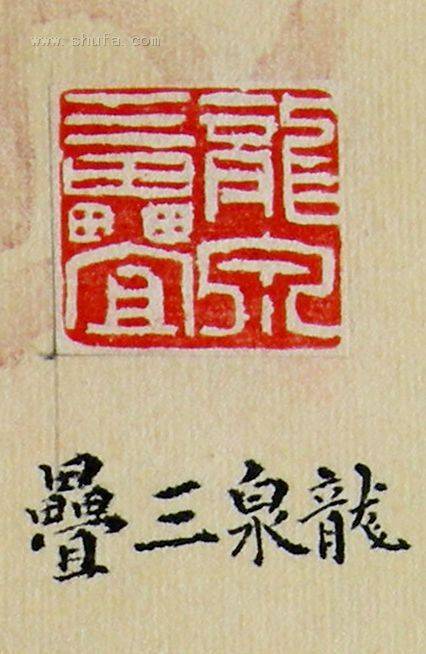 www.shufa.com
龍泉
三疊
龍泉三疊